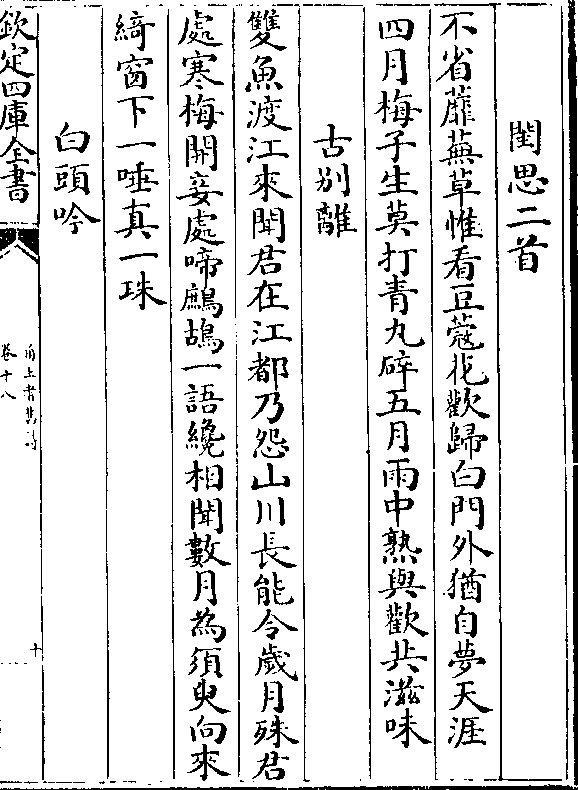 閨思二首
不省蘼蕪草惟看豆蔻花歡歸白門外猶自夢天涯
四月梅子生莫打青丸碎五月雨中熟與歡共滋味
古別離
雙魚渡江來聞君在江都乃怨山川長能令歲月殊君
處寒梅開妾處啼鷓鴣一語纔相聞數月為須臾向來
綺窗下一唾真一珠
白頭吟
欽定四庫全書
卷十八
十